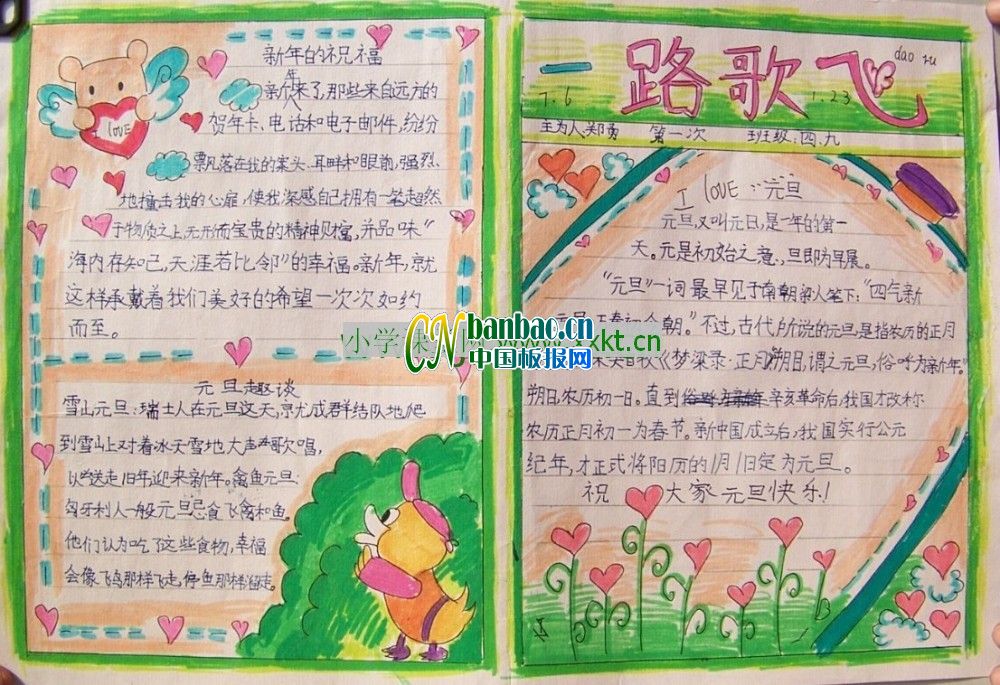 新年的祝福
新年来了,那些来自远方的
贺年卡、电话和电子邮件,纷纷
飘落在我的案头、耳畔和眼前,强烈
地撞击我的心扉,使我深感自己拥有一笔超然
于物质之上,无形而宝贵的精神财富,并品味"
海内存知己,天涯若比邻"的幸福。新年,就
这样承载着我们美好的希望一次次如约
而至。
love
元旦趣谈
雪山元旦:瑞士人在元旦这天,成群结队地爬
到雪山上对着冰天雪地大声歌唱,
以送走旧年迎来新年。禽鱼元旦:
匈牙利人一般元旦忌食飞禽和鱼。
他们认为吃了这些食物,幸福
会像飞鸟那样飞走,像鱼那样溜走。
一路歌飞
1.6
1.23
主为人:郑勇 第一次 班级:四、九
I love:元旦
元旦,又叫元日,是一年的第一
天。元是初始之意,旦即为早晨。
"元旦"一词最早见于南朝梁人笔下:"四气新
元旦,寿初今朝。"不过,古代所说的元旦是指农历的正月
《梦梁录·正月》朔日,谓之元旦,俗呼为新年。"
朔日,农历初一日。直到辛亥革命后,我国才改称
农历正月初一为春节。新中国成立后,我国实行公元
纪年,才正式将阳历的1月1日定为元旦。
祝大家元旦快乐!
小学
xkt.cn
CN banbao.cn
中国板报网